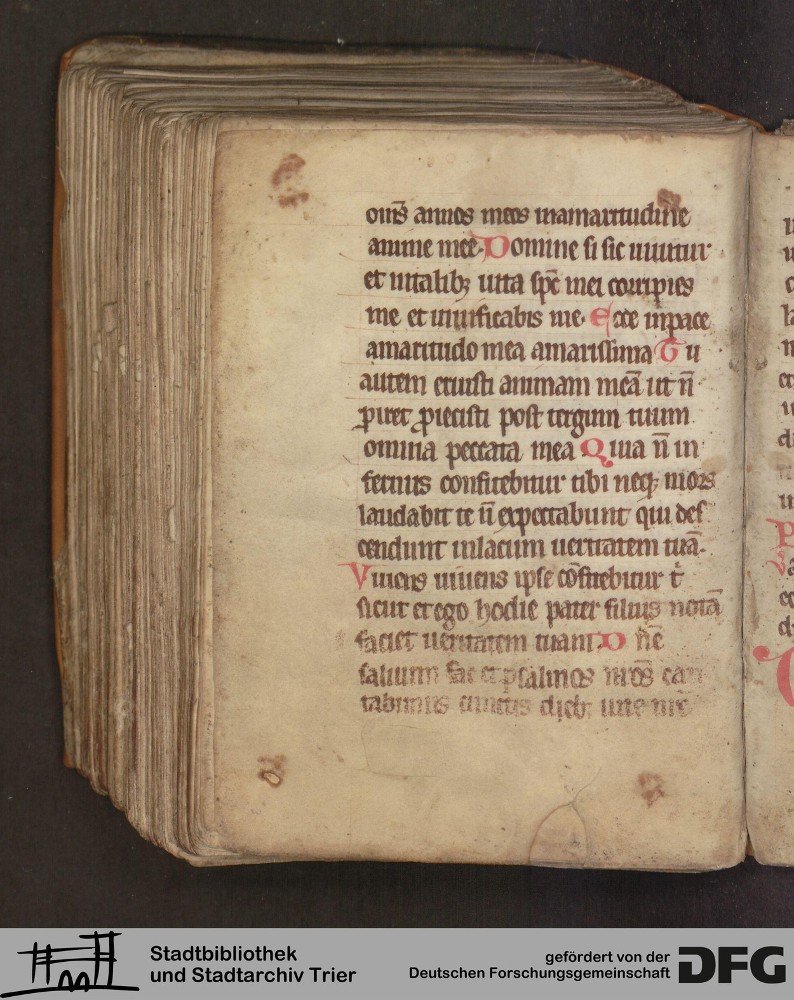 om̅s annos meos inamaritudine
anime mee. Domine si sic uiuitur
et intalibꝫ uita sp̅c mei corripies
me et uiuificabis me. Ecce inpace
amaritudo mea amarissima Tu
autem eruisti animam mea̅ ut n̅
ꝑiret ꝓiecisti post tergum tuum
omnia peccata mea Quia n̅ in
fernus confitebitur tibi neqꝫ mors
laudabit te n̅ expectabunt qui des
cendunt inlacum ueritatem tua̅.
Viuens uiuens ipse co̅fitebitur t̅
sicut et ego hodie pater filiis nota̅
faciet ueritatem tuam D n̅e
saluum fac et psalmos n̅ros can
tabimus cunctis diebꝫ uite n̅r̅e
Stadtbibliothek
und Stadtarchiv Trier
gefördert von der
Deutschen Forschungsgemeinschaft
DFG